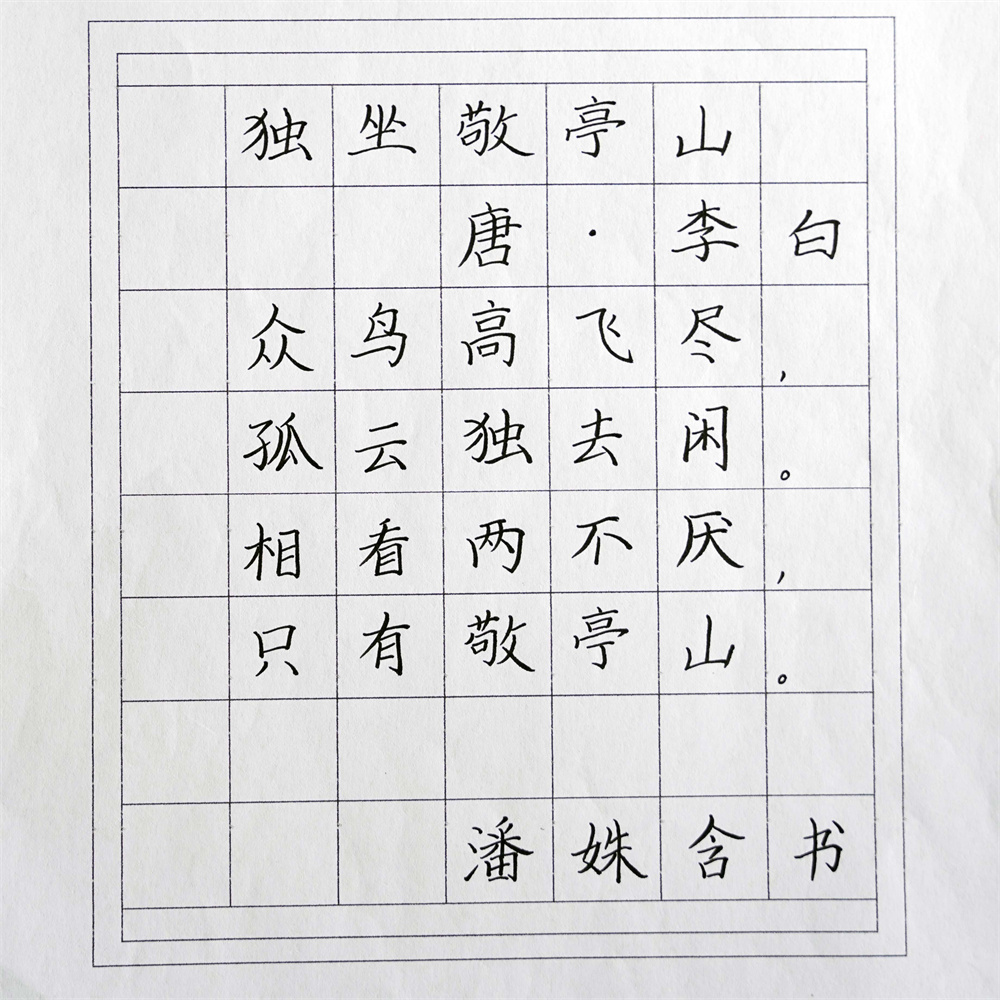 独坐敬亭山
唐·李白
众鸟高飞尽，
孤云独去闲。
相看两不厌，
只有敬亭山。
潘姝含书